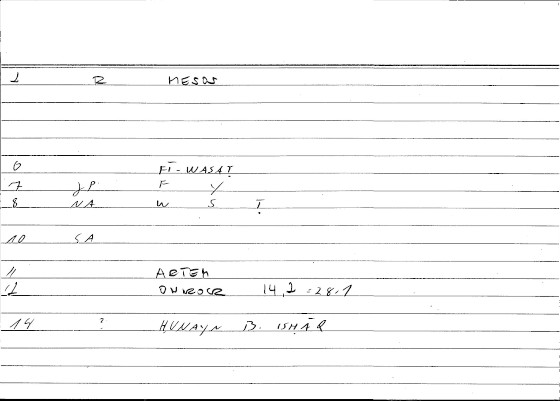 1 R MESOS
6 FĪ-WASAṬ
7 JP F Y
8 NA W S Ṭ
10 SA
11 ARTEM
12 ONIROCR 14,1 = 28.1
14 ? ḤUNAYN B. ISḤĀQ